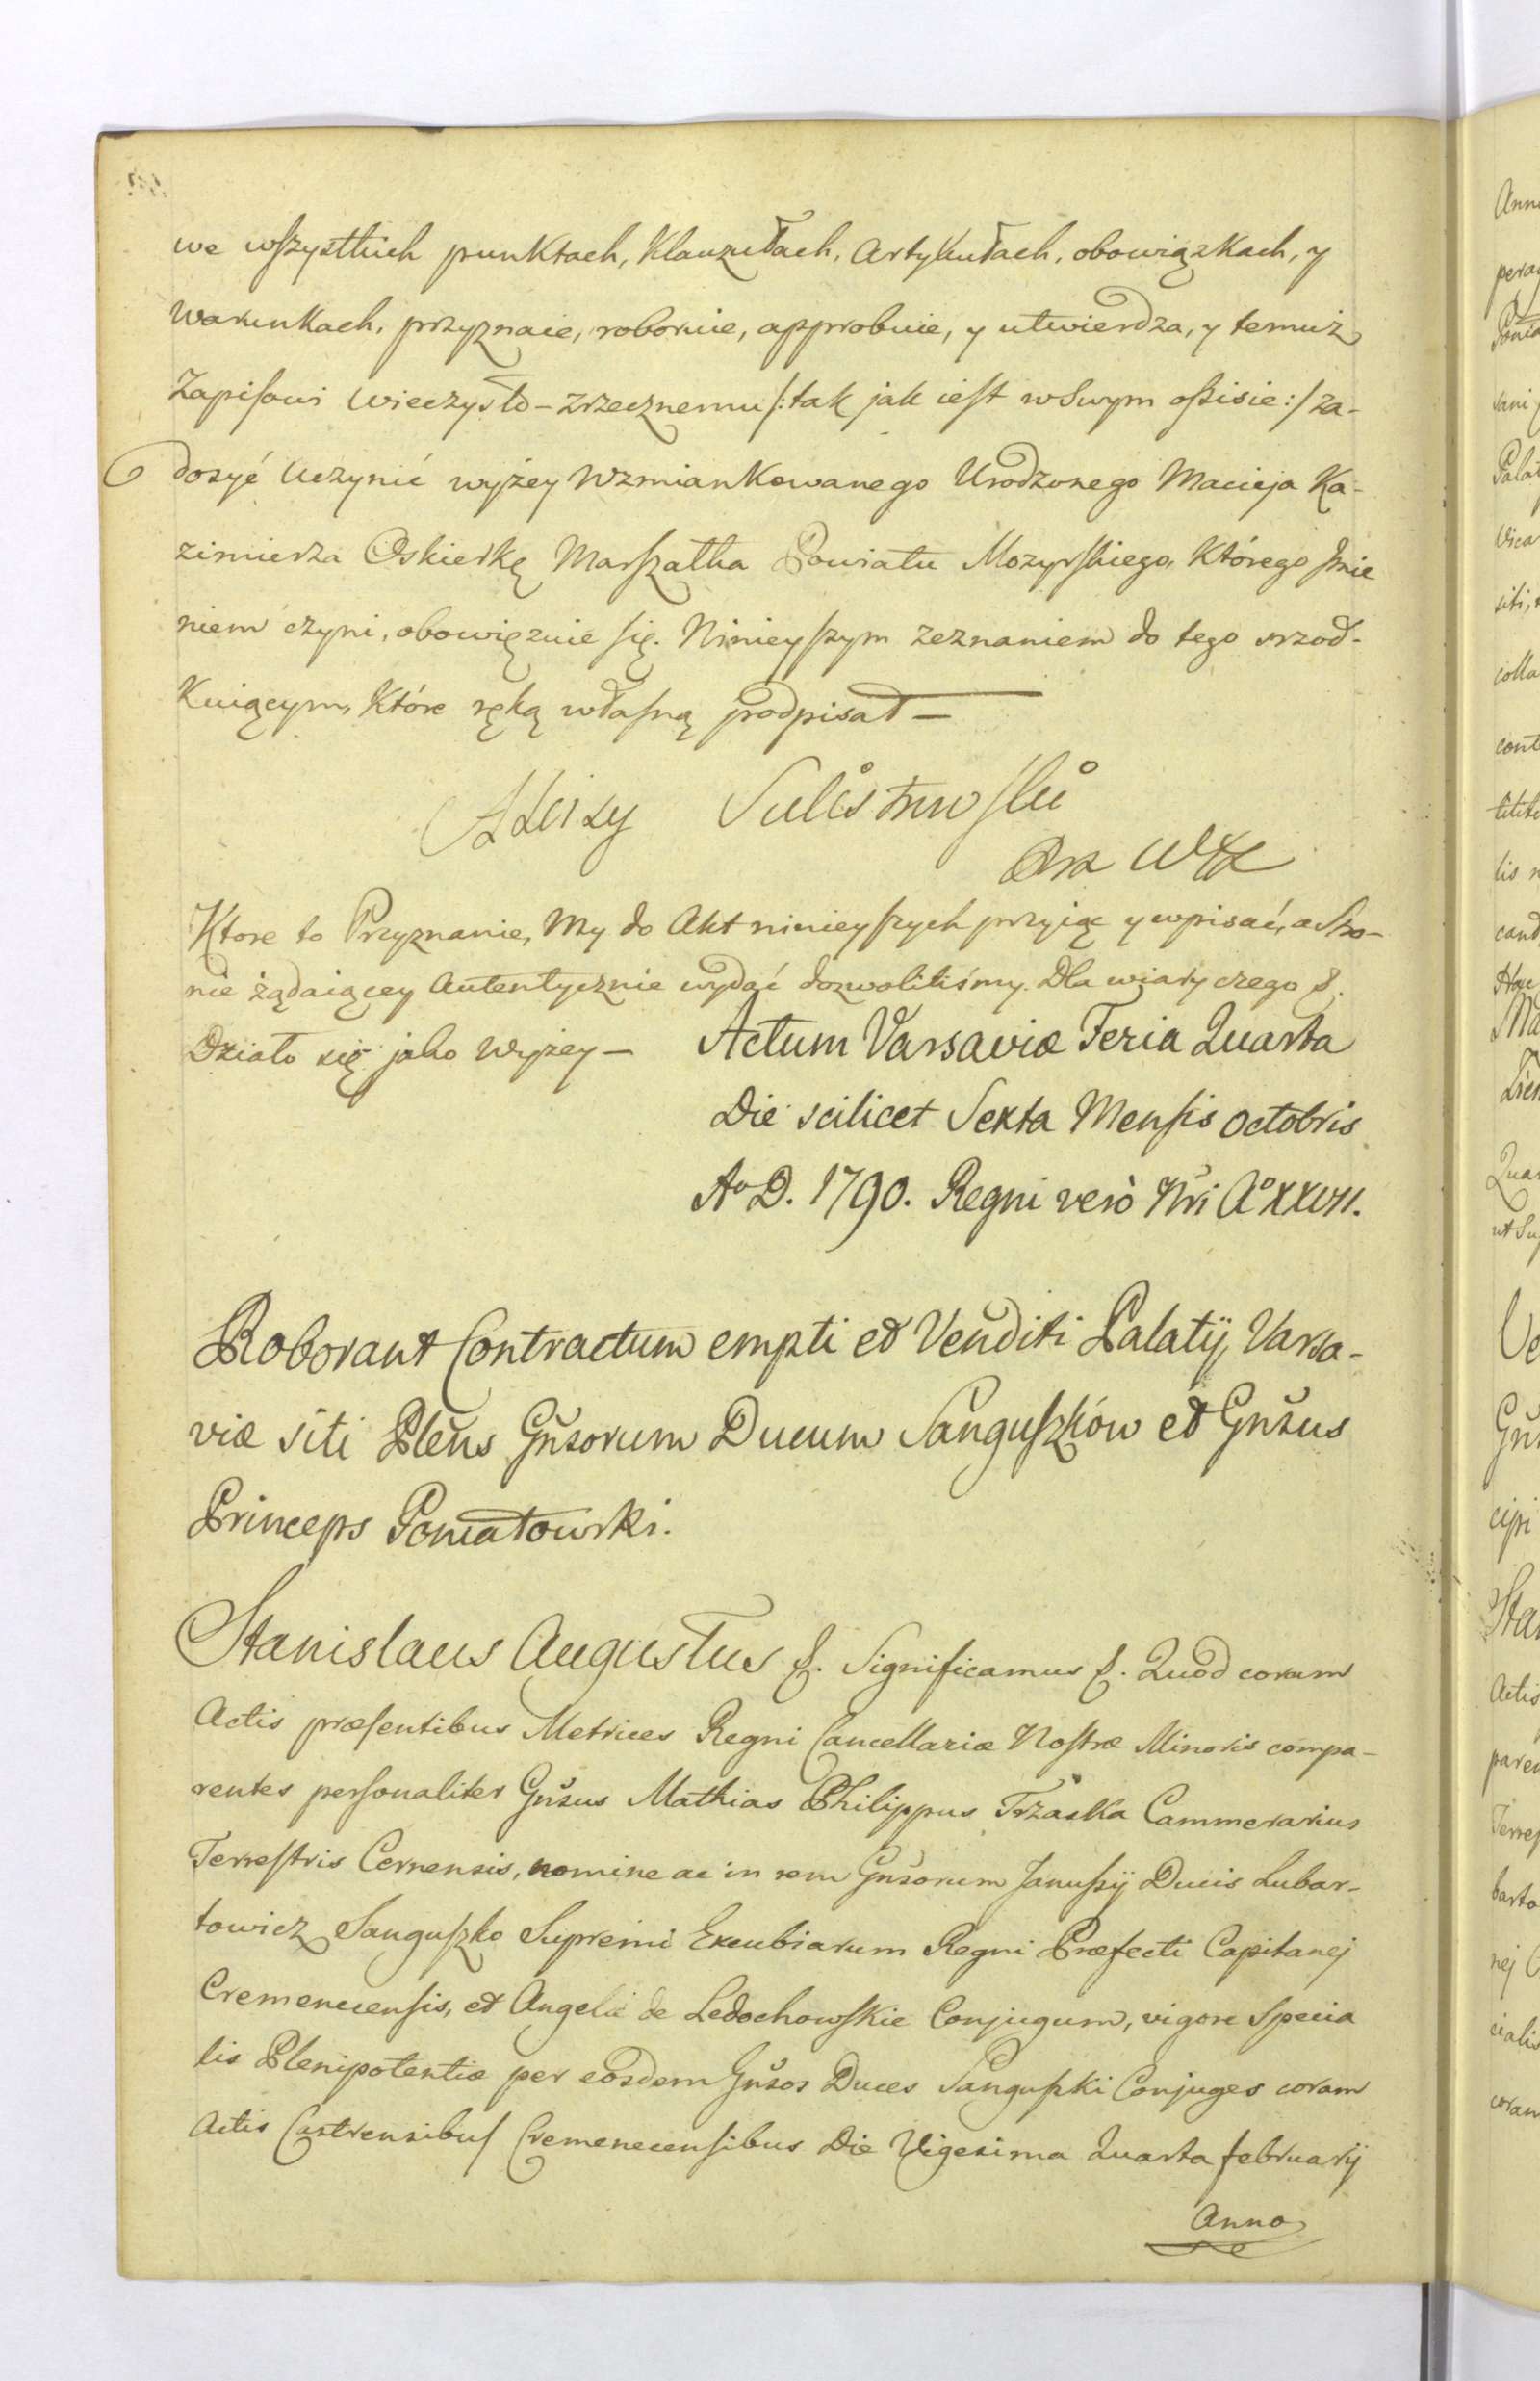 we wszystkich punktach, Klauzułach, Artykułach, obowiązkach, y
Warunkach, przyznaie, roboruie, approbuie, y utwierdza, y temuż
Zapisowi wieczysto-zrzecznemu /: tak jak iest w Swym ossisie :/ za-
dosyć uczynić wyżey Wzmiankowanego Urodzonego Macieja Ka-
zimierza Oskierkę Marszałka Powiatu Mozyrskiego, Którego Imie
niem czyni, obowięzuie się. Ninieyszym zeznaniem do tego srzod-
Kuiącym, Które ręką własną podpisał —
Aloizy Sulistrowski
Ktore to Przyznanie, My do Akt ninieyszych przyiąc y wpisać, a Stro-
nie żądaiącey Autentycznie wydać dozwoliliśmy. Dla wiary czego &.
Działo się jako Wyżey — Actum Varsaviæ Feria Quarta
Die scilicet Sexta Mensis Octobris
Aº D. 1790. Regni verò Nri Aº XXVII.
Roborant Contractum empti et Venditi Palatij Varsa-
viæ siti Plens Gnsorum Ducum Sanguszków et Gnsus
Princeps Poniatowski.
Stanislaus Augustus &. Significamus &. Quod coram
Actis præsentibus Metrices Regni Cancellariæ Nostræ Minoris compa-
rentes personaliter Gnsus Mathias Philippus Trzaska Cammerarius
Terrestris Cernensis, nomine ac in rem Gnsorum Janusij Ducis Lubar-
towicz Sanguszko Supremi Excubiarum Regni Præfecti Capitanej
Cremenecensis, et Angelæ de Ledochowskie Conjugum, vigore Specia
lis Plenipotentiæ per eosdem Gnsos Duces Sanguszki Conjuges coram
Actis Castrensibus Cremenecensibus Die Vigesima Quarta februarij
Anno